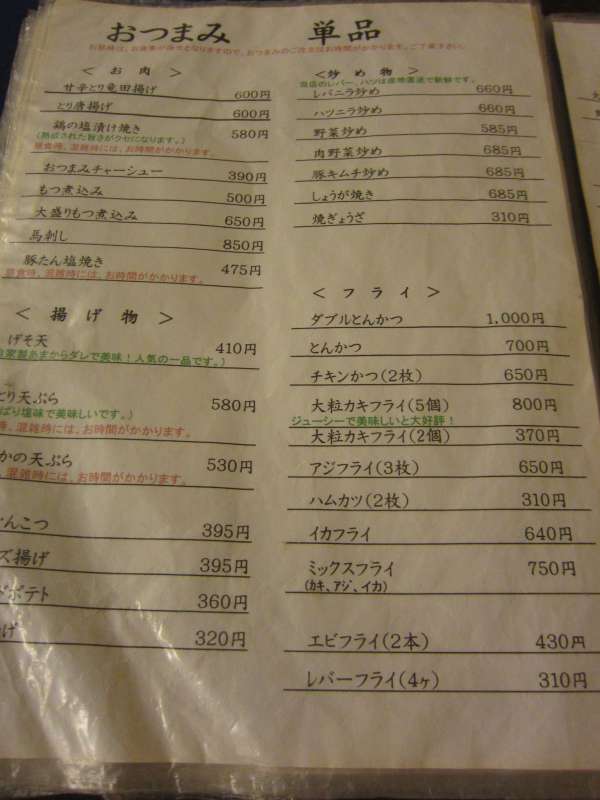 おつまみ 単品
お昼時は、お食事が優先となりますので、おつまみのご注文はお時間がかかります。ご了承下さい。
＜ お 肉 ＞
甘辛とり竜田揚げ 600円
とり唐揚げ 600円
鶏の塩漬け焼き 580円
(熟成された旨さがクセになります。)
昼食時、混雑時には、お時間がかかります
おつまみチャーシュー 390円
もつ煮込み 500円
大盛りもつ煮込み 650円
馬刺し 850円
豚たん塩焼き 475円
昼食時、混雑時には、お時間がかかります。
＜ 揚 げ 物 ＞
げそ天 410円
自家製あまからダレで美味！人気の一品です。)
とり天ぷら 580円
っぱり塩味で美味しいです。)
時、混雑時には、お時間がかかります。
かの天ぷら 530円
、混雑時には、お時間がかかります。
んこつ 395円
ズ揚げ 395円
ドポテト 360円
げ 320円
＜炒 め 物＞
当店のレバー、ハツは産地直送で新鮮です。
レバニラ炒め 660円
ハツニラ炒め 660円
野菜炒め 585円
肉野菜炒め 685円
豚キムチ炒め 685円
しょうが焼き 685円
焼ぎょうざ 310円
＜ フ ラ イ ＞
ダブルとんかつ 1,000円
とんかつ 700円
チキンかつ(2枚) 650円
大粒カキフライ(5個) 800円
ジューシーで美味しいと大好評！
大粒カキフライ(2個) 370円
アジフライ(3枚) 650円
ハムカツ(2枚) 310円
イカフライ 640円
ミックスフライ 750円
(カキ、アジ、イカ)
エビフライ(2本) 430円
レバーフライ(4ヶ) 310円